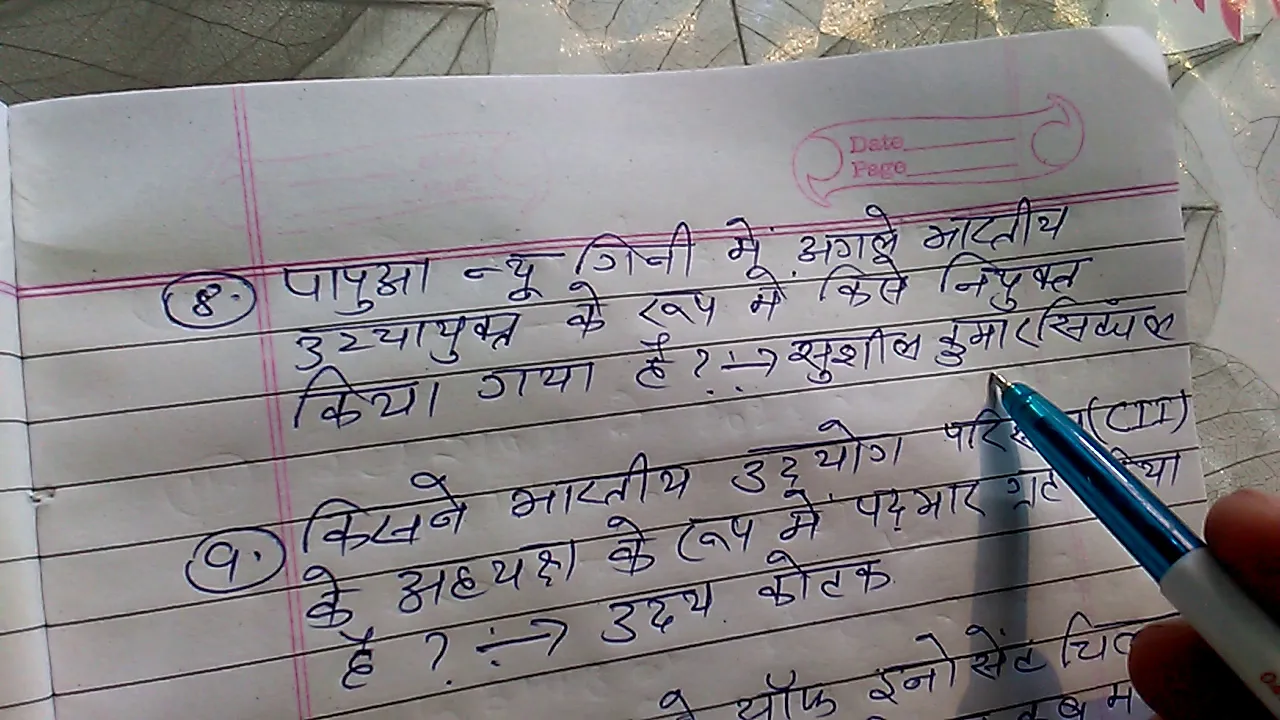 Date
Page
8. पापुआ न्यू गिनी में अगले भारतीय
उच्चायुक्त के रूप में किसे नियुक्त
किया गया है? ÷→ सुशील कुमार सिंघल
9. किसने भारतीय उद्योग (CII)
के अध्यक्ष के रूप में पद्भार
है? ÷→ उदय कोटक
ऑफ इनोसेंट